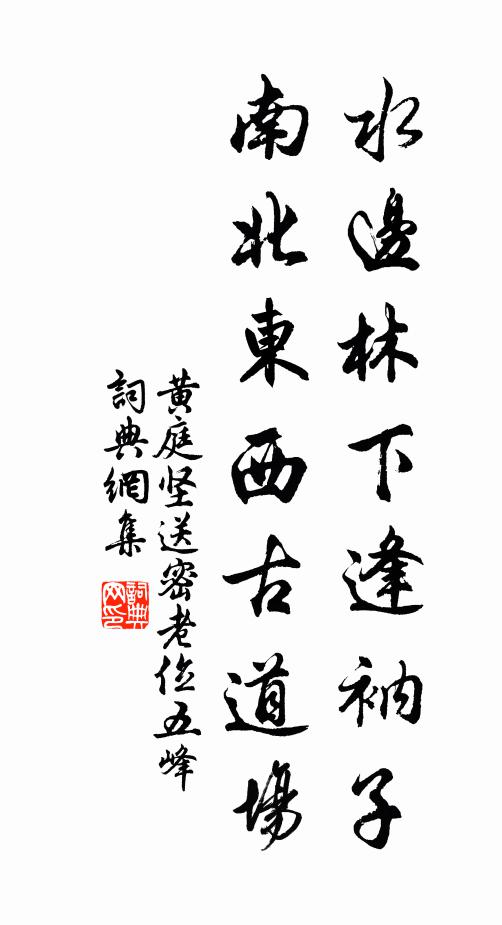 水邊林下逢衲子
南北東西古道場
黄庭坚送密老住五峰
詞典網集
詞典
网印